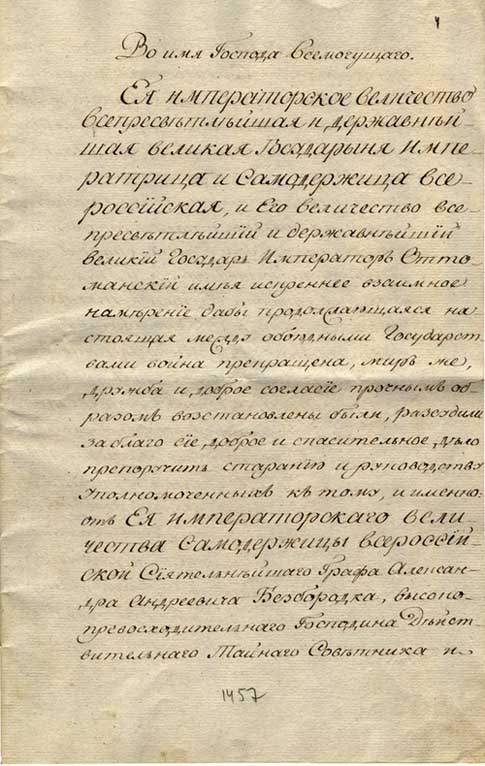 Во имя Господа Всемогущаго.
Ея императорское величество
всепресвѣтлѣйшая и державнѣй-
шая великая Государыня импе-
ратрица и Самодержица Все-
россійская, и Его величество все-
пресвѣтлѣйшій и державнѣйшій
великій Государь Императоръ Отто-
манскій имѣя искреннее взаимное
намѣреніе дабы продолжающаяся на-
стоящая между обоюдными Государст-
вами война прекращена, миръ же,
дружба и доброе согласіе прочнымъ об-
разомъ возстановлены были, разсудили
заблаго сіе доброе и спасительное дѣло
препоручить старанію и руководству
уполномоченныхъ къ тому, и именно:
отъ Ея императорскаго вели-
чества Самодержицы всероссій-
ской Сіятельнѣйшаго Графа Алексан-
дра Андреевича Безбородка, высоко-
превосходительнаго Господина Дѣйст-
вительнаго Тайнаго Совѣтника и
1457